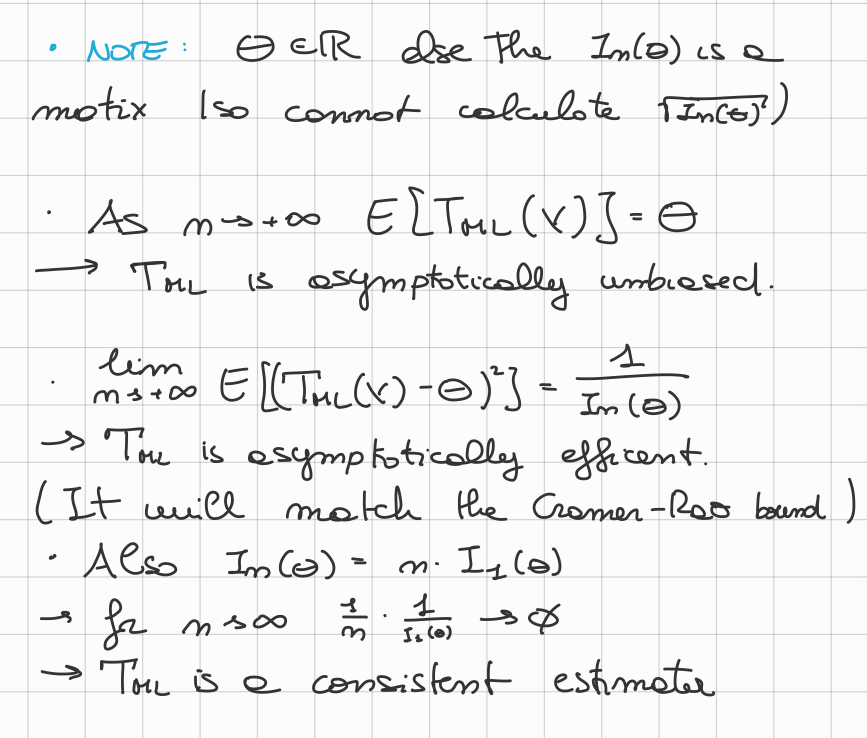 • NOTE: Θ ∈ ℝ else the In(θ) is a
matix (so cannot calculate √In(θ)')
· As n → +∞ E[T_ML(V)] = Θ
→ T_ML is asymptotically unbiased.
· lim n→+∞ E[(T_ML(V) - Θ)²] = 1/In(θ)
→ T_ML is asymptotically efficent.
(It will match the Cramer-Rao bound)
• Also In(θ) = n · I₁(θ)
→ for n → ∞ 1/n · 1/I₁(θ) → ∅
→ T_ML is a consistent estimator